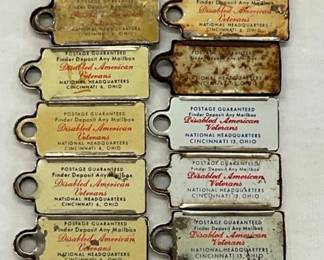 Finder Deposit Any Mailbox
Disabled American
Veterans
NATIONAL HEADQUARTERS
CINCINNATI 6, OHIO
Disabled American
Veterans
NATIONAL HEADQUARTERS
CINCINNATI
OHIO
POSTAGE GUARANTEED
Finder Deposit Any Mailbox
Disabled American
Veterans
NATIONAL HEADQUARTERS
CINCINNATI 6, OHIO
NATIONAL HEADQUARTERS
POSTAGE GUARANTEED
Finder Deposit Any Mailbox
Disabled American
Veterans
NATIONAL HEADQUARTERS
CINCINNATI 6, OHIO
POSTAGE GUARANTEED
Finder Deposit Any Mailbox
Disabled American
Veterans
NATIONAL HEADQUARTERS
CINCINNATI 13, OHIO
POSTAGE GUARANTEED
Finder Deposit Any Mailbox
Disabled American
Veterans
NATIONAL HEADQUARTERS
CINCINNATI 6, OHIO
POSTAGE GUARANTEED
Finder Deposit Any Mailbox
Disabled American
Veterans
NATIONAL HEADQUARTERS
CINCINNATI 13, OHIO
POSTAGE GUARANTEED
Finder Deposit Any Mailbox
Disabled American
Veterans
NATIONAL HEADQUARTERS
POSTAGE GUARANTEED
Finder Deposit Any Mailbox
Disabled American
Veterans
NATIONAL HEADQUARTERS